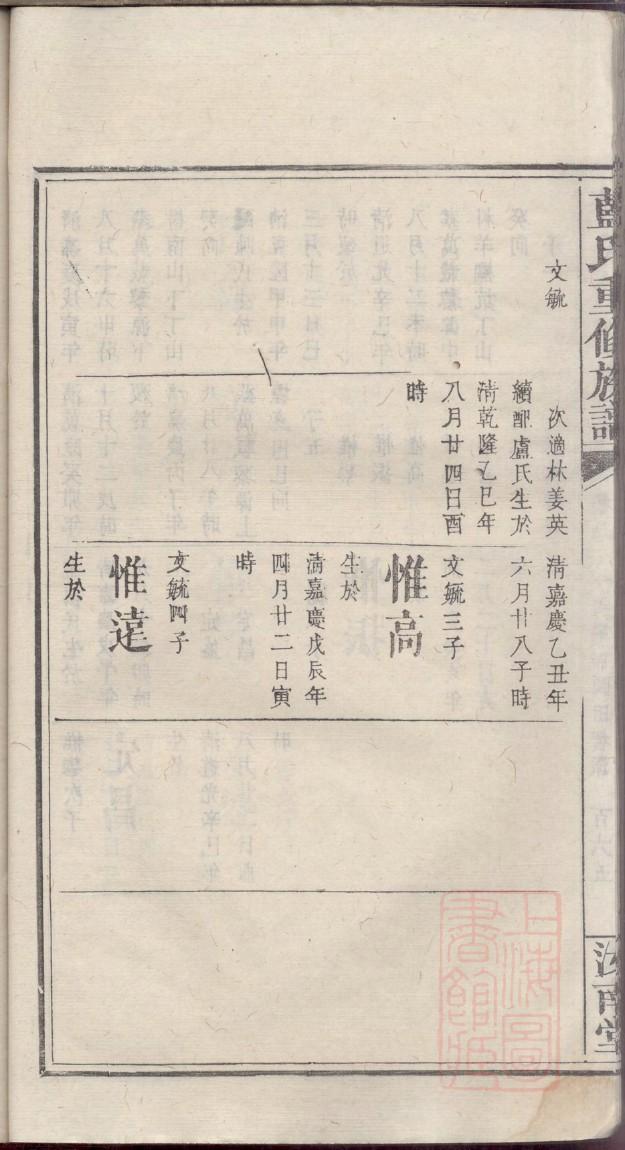 藍氏重修族譜
汝南堂
文毓
次適林姜英
續配盧氏生於
清乾隆乙巳年
八月廿四日酉
時
清嘉慶乙丑年
六月廿八子時
文毓三子
惟高
清嘉慶戊辰年
四月廿二日寅
時
文毓四子
惟遠
生於
上海圖
書館藏